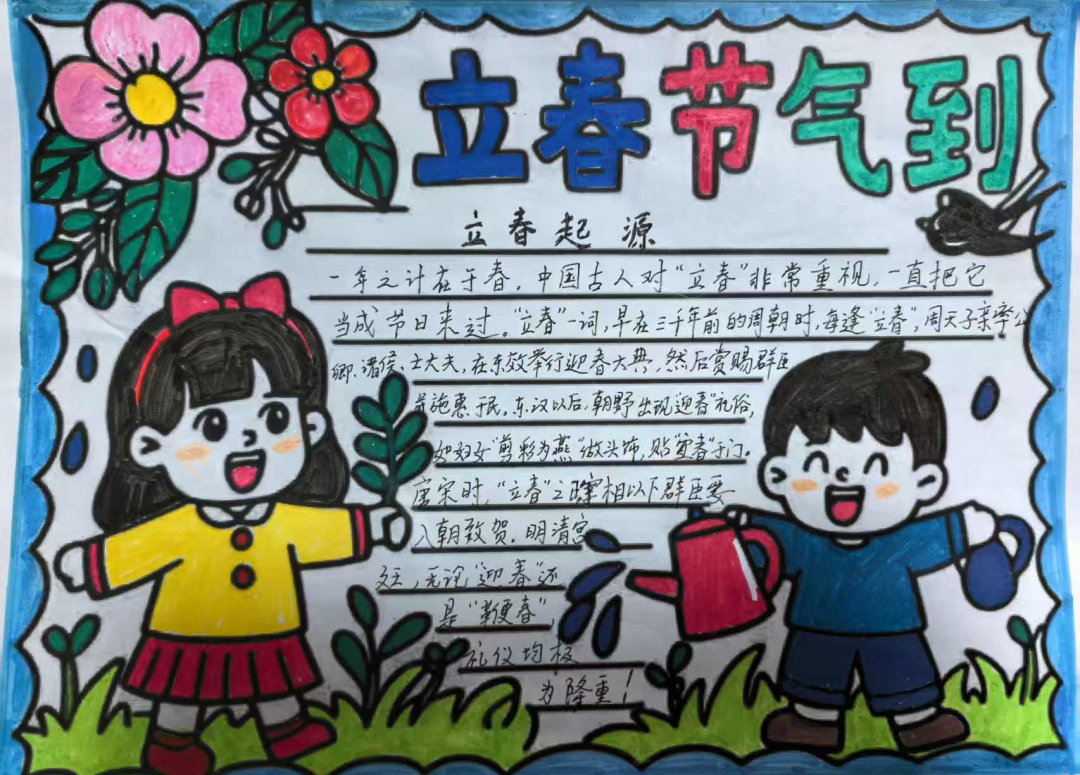 立春节气到
立春起源
一年之计在于春，中国古人对“立春”非常重视，一直把它
当成节日来过。“立春”一词，早在三千年前的周朝时，每逢“立春”，周天子亲率公
卿、诸侯、士大夫，在东效举行迎春大典，然后赏赐群臣
并施惠于民，东汉以后，朝野出现迎春礼俗，
如妇女“剪彩为燕”做头饰，贴“宜春”于门。
唐宋时，“立春”之日宰相以下群臣要
入朝致贺。明清宫
无论“迎春”还
是“鞭春”，
礼仪均极
为隆重！